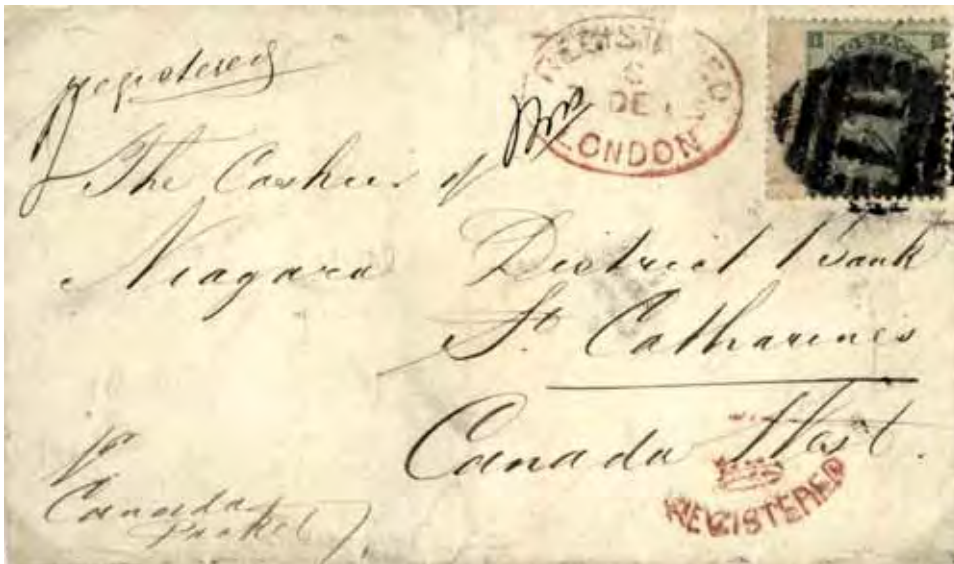 Registered
REGISTERED
DE
LONDON
The Cashier of
Niagara District Bank
St Catharines
Canada West.
Canada
Packet
REGISTERED